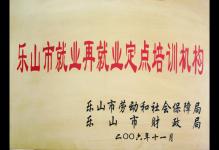 乐山市就业再就业定点培训机构
乐山市劳动和社会保障局
乐山市财政局
二〇〇六年十一月